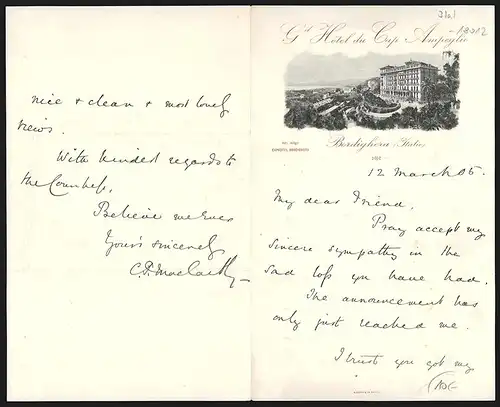 Gd Hôtel du Cap Ampeglio
Bordighera (Italie)
12 March 05.
My dear Friend,
Pray accept my
sincere sympathy in the
sad loss you have had.
The announcement has
only just reached me.
I trust you got my
nice & clean & most lovely
views.
With kindest regards to
the Countess,
Believe me Ever
Yours sincerely